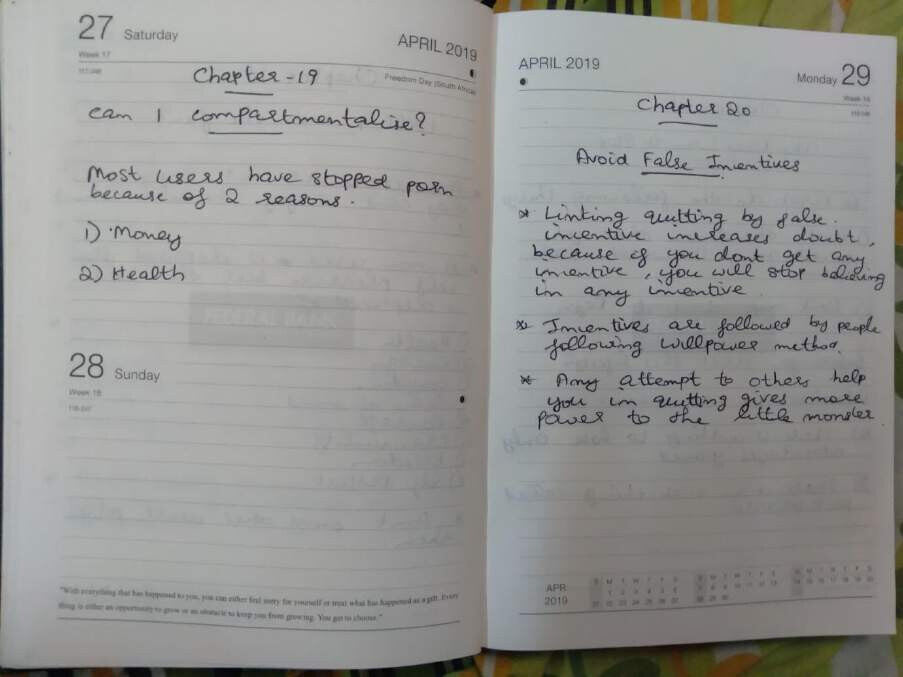 27 Saturday
APRIL 2019
Week 17
Freedom Day (South Africa)
Chapter - 19
can I compartmentalise?
Most users have stopped porn
because of 2 reasons.
1) Money
2) Health
28 Sunday
"With everything that has happened to you, you can either feel sorry for yourself or treat what has happened as a gift. Every
thing is either an opportunity to grow or an obstacle to keep you from growing. You get to choose."
APRIL 2019
Monday 29
Chapter 20
Avoid False Incentives
* Linking quitting by false
incentive increases doubt,
because if you dont get any
incentive, you will stop believing
in any incentive.
* Incentives are followed by people
following willpower method.
* Any attempt to others help
you in quitting gives more
power to the little monster
APR
2019